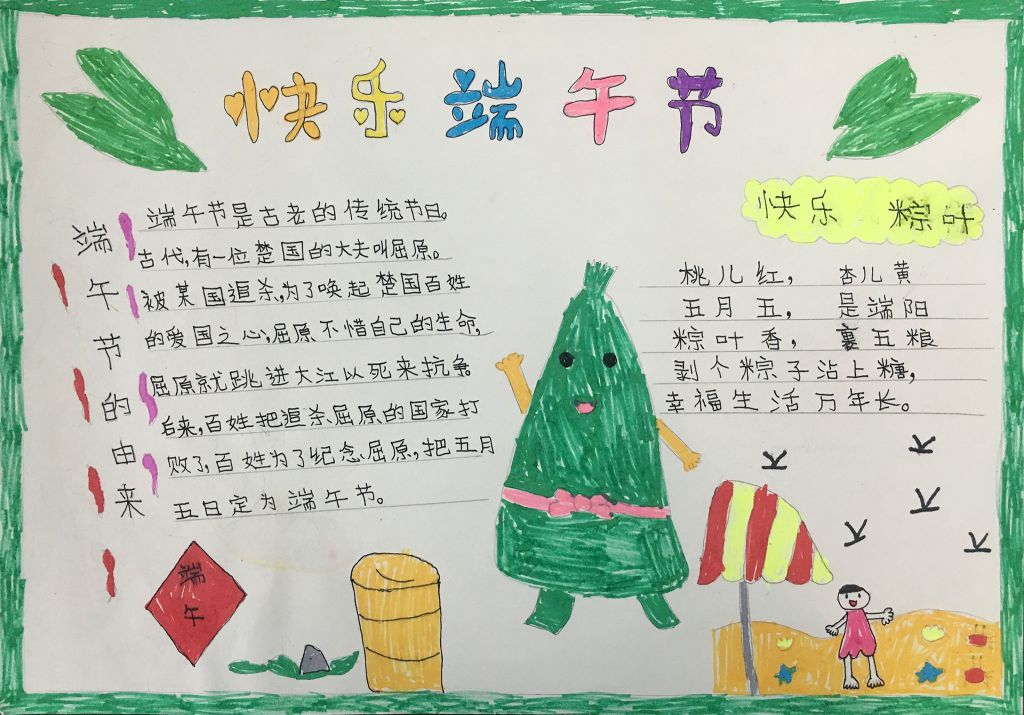 快乐端午节
端午节的由来
端午节是古老的传统节日。
古代,有一位楚国的大夫叫屈原。
被某国追杀,为了唤起楚国百姓
的爱国之心,屈原不惜自己的生命,
屈原就跳进大江以死来抗争
后来,百姓把追杀屈原的国家打
败了,百姓为了纪念屈原,把五月
五日定为端午节。
快乐 粽叶
桃儿红, 杏儿黄
五月五, 是端阳
粽叶香, 裹五粮
剥个粽子沾上糖,
幸福生活万年长。
端
午